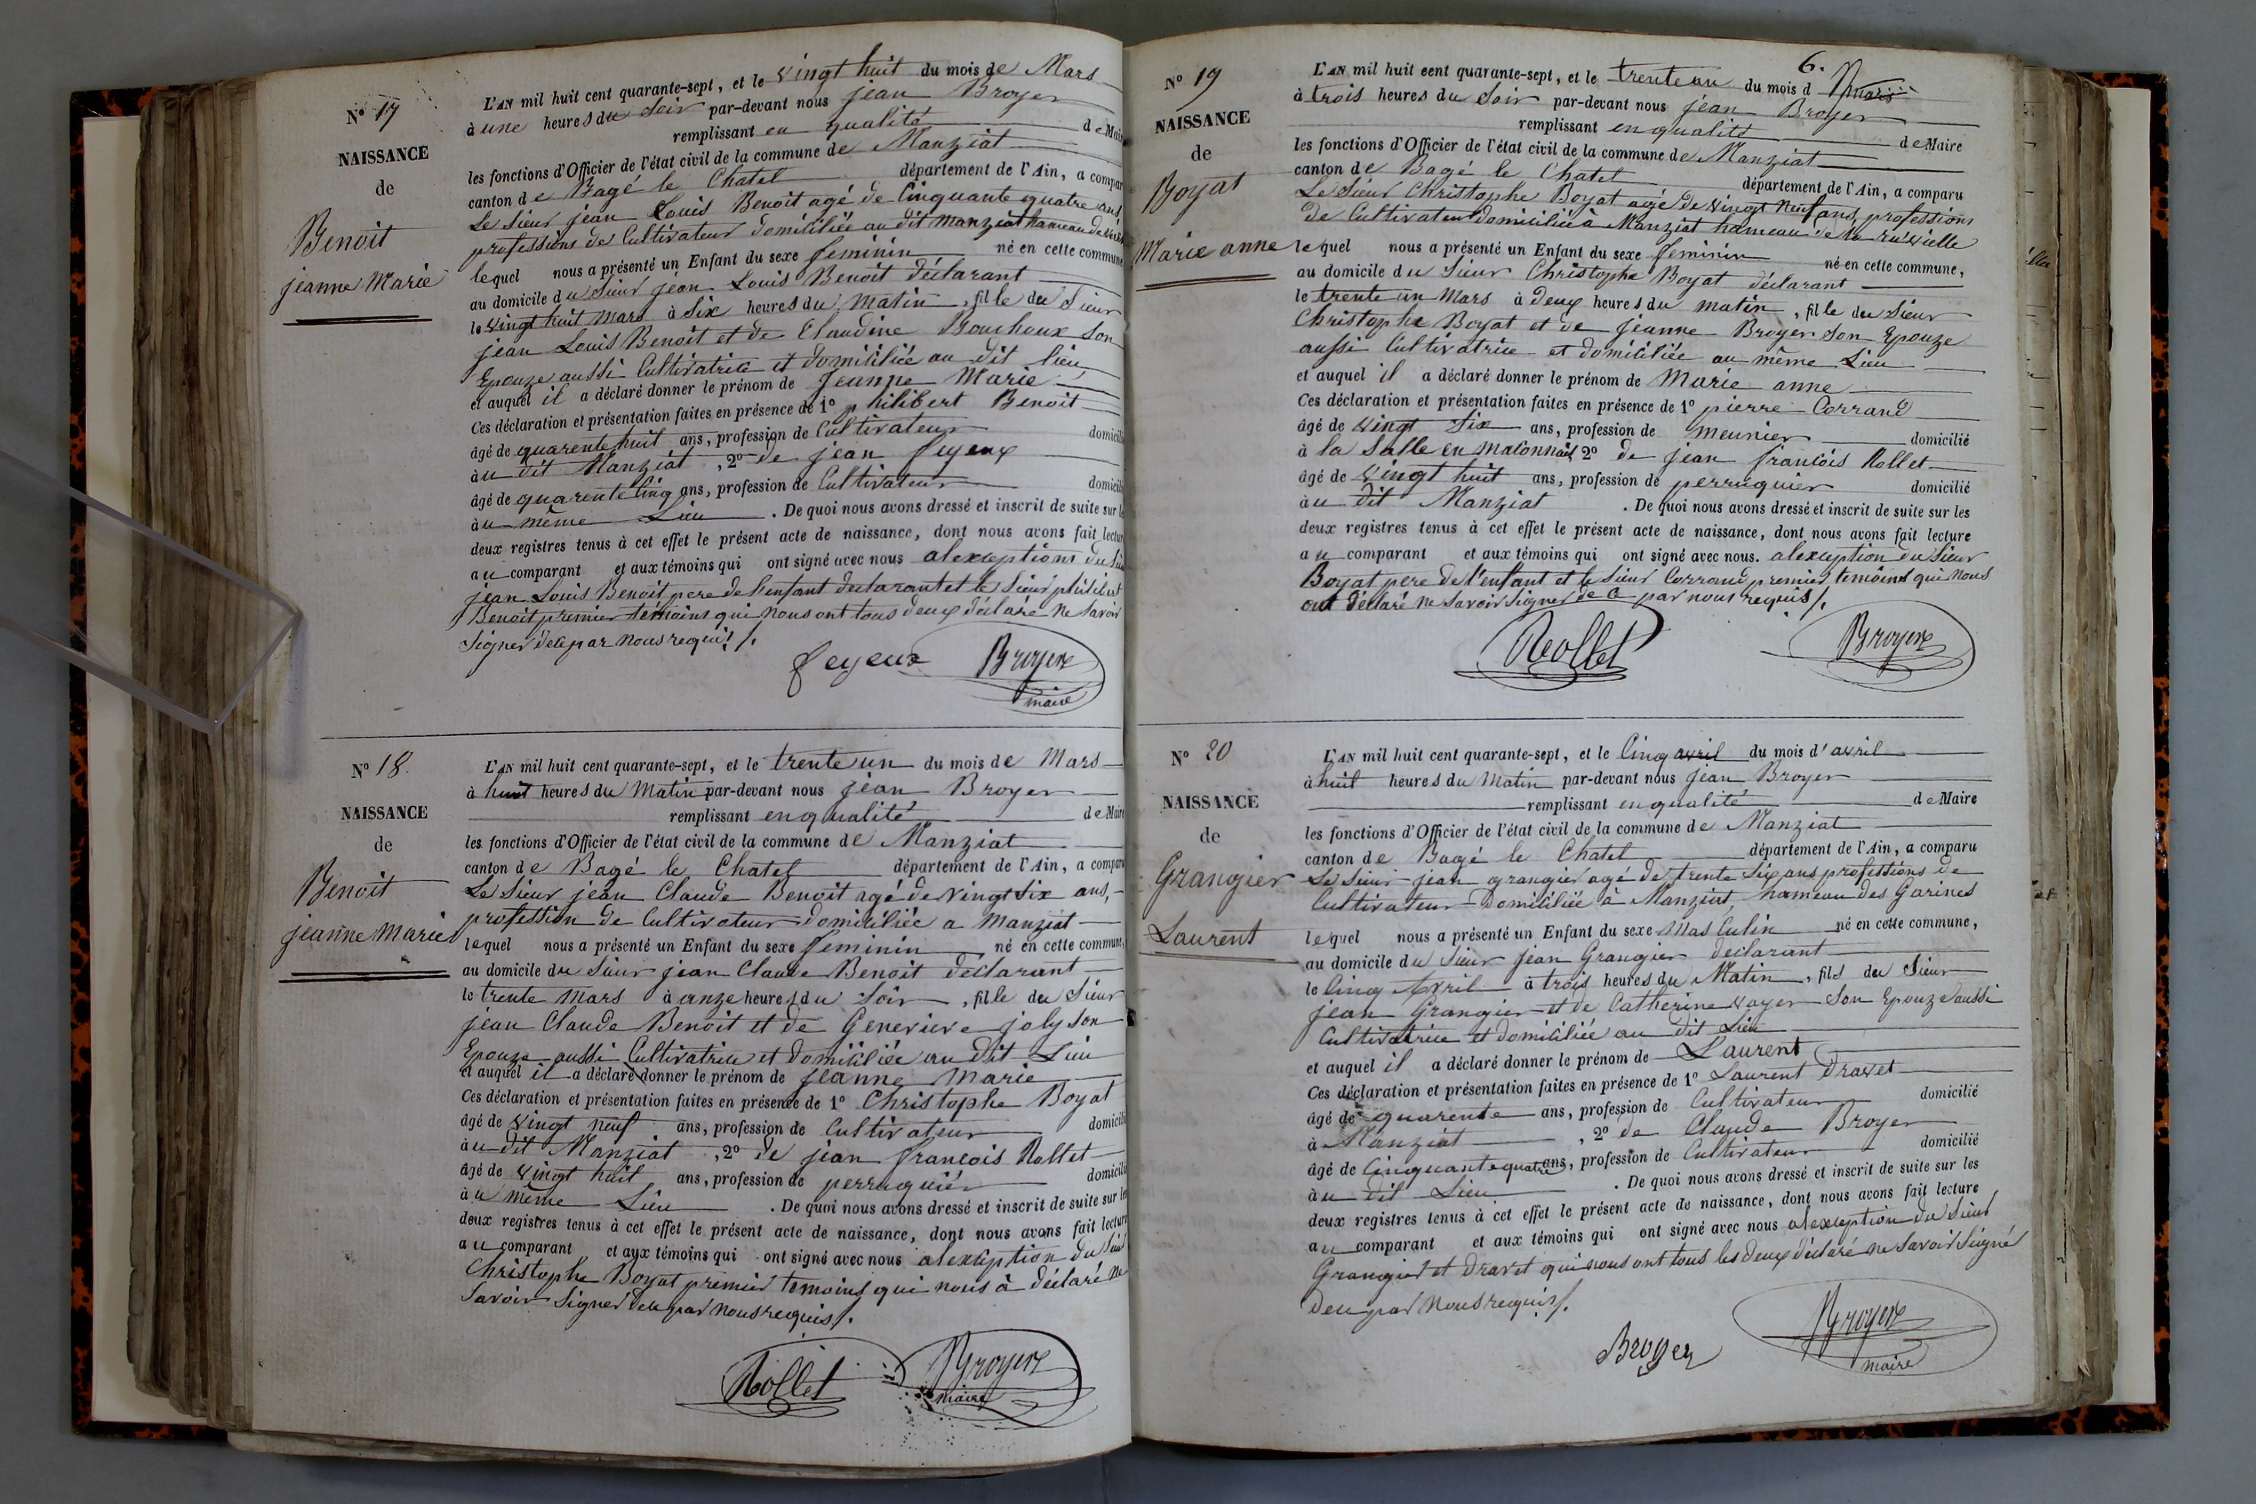 Nº 17
NAISSANCE
de
Benoit
jeanne Marie
L'AN mil huit cent quarante-sept, et le vingt huit du mois de Mars
à une heures du soir par-devant nous jean Broyer
remplissant en qualité de Maire
les fonctions d'Officier de l'état civil de la commune de Manziat
canton de Bagé le Chatel département de l'Ain, a compar
Le Sieur jean Louis Benoit agé de Cinquante quatre ans
professions de Cultivateur domiciliée au dit manziat hameau de
lequel nous a présenté un Enfant du sexe feminin né en cette commune
au domicile du Sieur jean Louis Benoit déclarant
le vingt huit mars à six heures du matin, fille du Sieur
jean Louis Benoit et de Claudine Bouchoux son
Epouze aussi Cultivatrice et domiciliée au dit lieu
et auquel il a déclaré donner le prénom de Jeanne Marie
Ces déclaration et présentation faites en présence de 1º philibert Benoit
âgé de quarente huit ans, profession de Cultivateur domicilié
à u dit Manziat, 2º de jean feyeux
âgé de quarente Cinq ans, profession de Cultivateur domicilié
à u même Lieu. De quoi nous avons dressé et inscrit de suite sur le
deux registres tenus à cet effet le présent acte de naissance, dont nous avons fait lectur
au comparant et aux témoins qui ont signé avec nous alexceptions du Sieu
jean Louis Benoit pere de l'enfant declarant et le Sieur philibert
Benoit premier témoins qui nous ont tous deux déclaré ne savoir
signer dece par nous requis /.
feyeux Broyer
maire
Nº 18.
NAISSANCE
de
Benoit
jeanne marie
L'AN mil huit cent quarante-sept, et le trente un du mois de Mars
à huit heures du Matin par-devant nous jean Broyer
remplissant en qualité de Maire
les fonctions d'Officier de l'état civil de la commune de Manziat
canton de Bagé le Chatel département de l'Ain, a comparu
Le Sieur jean Claude Benoit agé de vingt six ans,
profession de Cultivateur domiciliée a Manziat
lequel nous a présenté un Enfant du sexe feminin né en cette commune,
au domicile du Sieur jean Claude Benoit déclarant
le trente mars à onze heures du Soir, fille du Sieur
jean Claude Benoit et de Genevieve joly son
Epouze aussi Cultivatrice et domiciliée au dit Lieu
et auquel il a déclaré donner le prénom de jeanne Marie
Ces déclaration et présentation faites en présence de 1º Christophe Boyat
âgé de vingt neuf ans, profession de Cultivateur domicilié
à u dit Manziat, 2º de jean francois Rollet
âgé de vingt huit ans, profession de perruquier domicilié
à u même Lieu. De quoi nous avons dressé et inscrit de suite sur les
deux registres tenus à cet effet le présent acte de naissance, dont nous avons fait lecture
au comparant et aux témoins qui ont signé avec nous alexception du Sieur
Christophe Boyat premier temoins qui nous à déclaré ne
savoir signer dece par nous requis /.
Rollet Broyer
maire
6.
Nº 19
NAISSANCE
de
Boyat
Marie anne
L'AN mil huit cent quarante-sept, et le trente un du mois d Mars
à trois heures du Soir par-devant nous jean Broyer
remplissant en qualité de Maire
les fonctions d'Officier de l'état civil de la commune de Manziat
canton de Bagé le Chatel département de l'Ain, a comparu
Le Sieur Christophe Boyat agé de vingt neuf ans, professions
de Cultivateur domiciliée à Manziat hameau de la
lequel nous a présenté un Enfant du sexe feminin né en cette commune,
au domicile du Sieur Christophe Boyat déclarant
le trente un Mars à deux heures du matin, fille du Sieur
Christophe Boyat et de jeanne Broyer son Epouze
aussi Cultivatrice et domiciliée au même Lieu
et auquel il a déclaré donner le prénom de Marie anne
Ces déclaration et présentation faites en présence de 1º pierre Corrand
âgé de vingt six ans, profession de meunier domicilié
à la Salle en Maconnais, 2º de jean francois Rollet
âgé de vingt huit ans, profession de perruquier domicilié
à u dit Manziat. De quoi nous avons dressé et inscrit de suite sur les
deux registres tenus à cet effet le présent acte de naissance, dont nous avons fait lecture
au comparant et aux témoins qui ont signé avec nous. alexception du Sieur
Boyat pere de l'enfant et le Sieur Corrand premier temoins qui nous
ont déclaré ne savoir signer de ce par nous requis /.
Rollet Broyer
Nº 20
NAISSANCE
de
Grangier
Laurent
L'AN mil huit cent quarante-sept, et le Cinq avril du mois d'avril
à huit heures du Matin par-devant nous jean Broyer
remplissant en qualité de Maire
les fonctions d'Officier de l'état civil de la commune de Manziat
canton de Bagé le Chatel département de l'Ain, a comparu
Le Sieur jean grangier agé de trente Six ans professions de
Cultivateur Domiciliée à Manziat, hameau des Garines
lequel nous a présenté un Enfant du sexe MasCulin né en cette commune,
au domicile du Sieur jean Grangier declarant
le Cinq Avril à trois heures du Matin, fils du Sieur
jean Grangier et de Catherine vayer Son Epouze aussi
Cultivatrice et domiciliée au dit Lieu
et auquel il a déclaré donner le prénom de Laurent
Ces déclaration et présentation faites en présence de 1º Laurent Dravet
âgé de quarente ans, profession de Cultivateur domicilié
à Manziat, 2º de Claude Broyer
âgé de Cinquante quatre ans, profession de Cultivateur domicilié
à u dit Lieu. De quoi nous avons dressé et inscrit de suite sur les
deux registres tenus à cet effet le présent acte de naissance, dont nous avons fait lecture
au comparant et aux témoins qui ont signé avec nous alexception du Sieur
Grangier et Dravet qui nous ont tous les deux déclaré ne savoir Signé
dece par nous requis /.
Broyer Broyer
maire